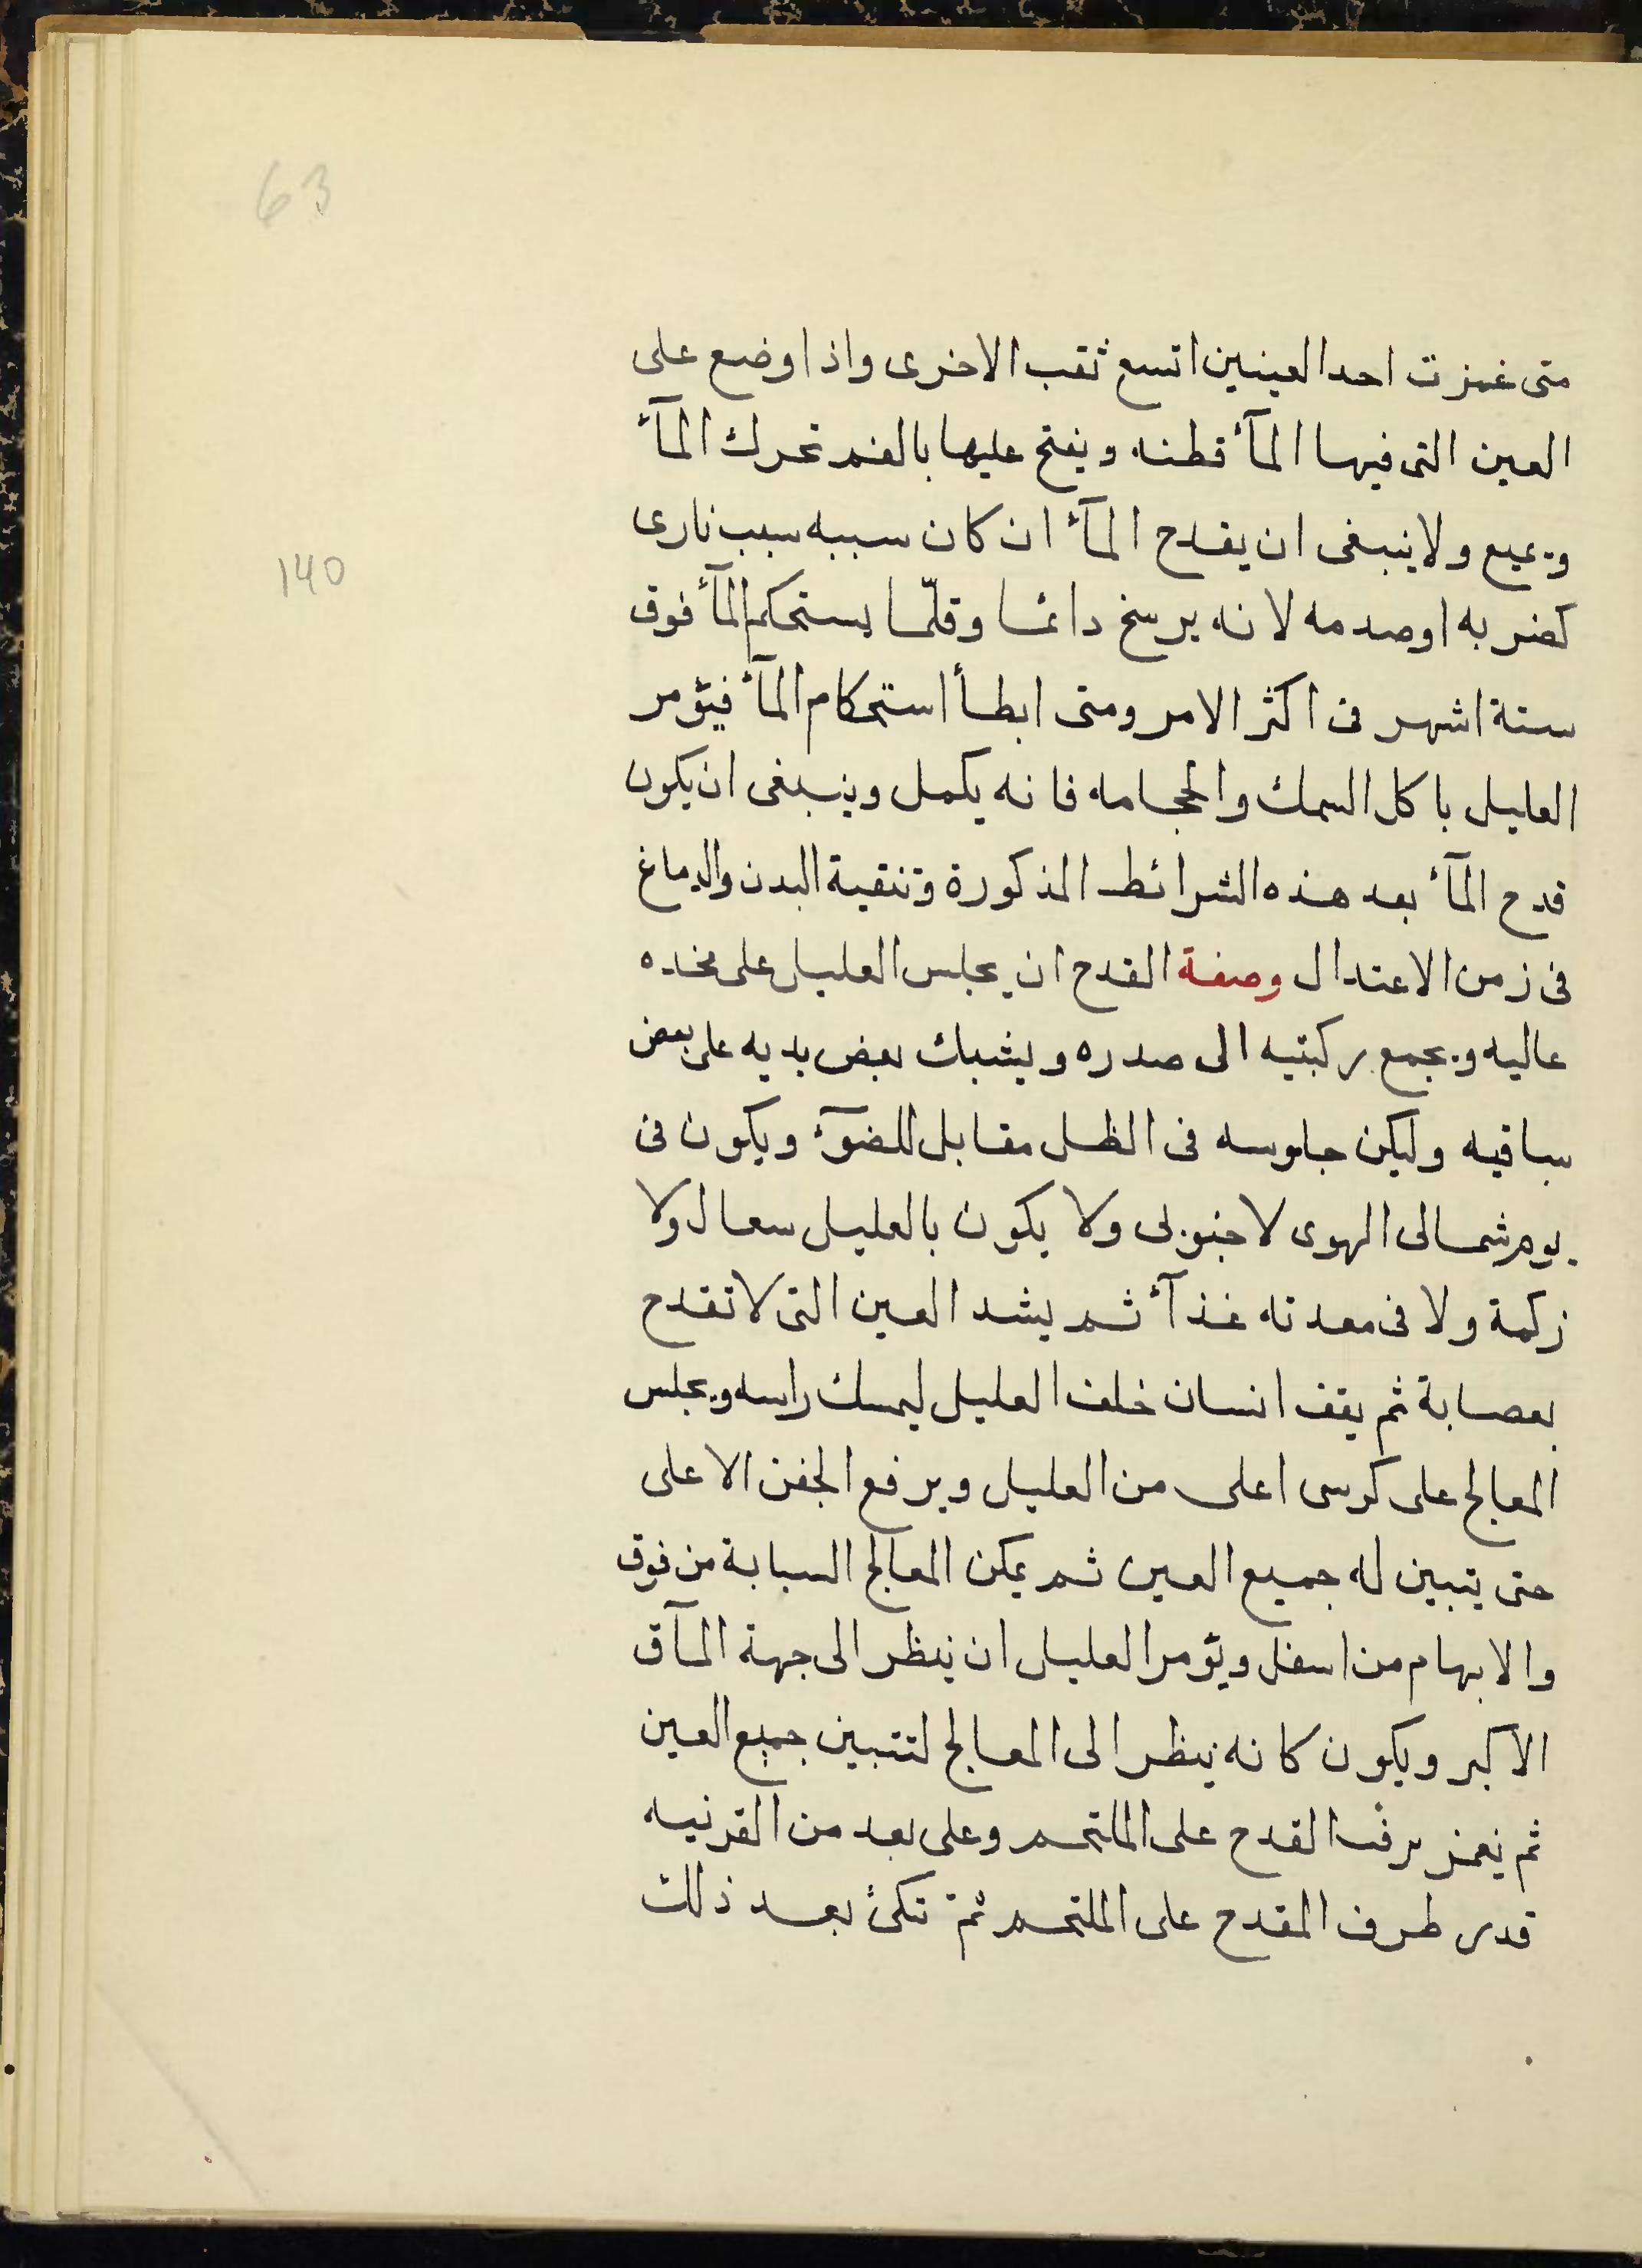 63
متى غمزت احد العينين اتسع ثقب الاخرى واذا وضع على
العين التى فيها المآء قطنه ويفتح عليها بالفم تحرك المآء
ويميع ولا ينبغى ان يقدح المآء ان كان سببه سبب نارى
140
كضربه او صدمه لانه يرسخ دائما وقلّما يستحكم المآء فوق
ستة اشهر فى اكثر الامر ومتى ابطأ استحكام المآء فيؤمر
العليل باكل السمك والحجامه فانه يكمل وينبغى ان يكون
قدح المآء بعد هذه الشرائط المذكورة وتنقية البدن والدماغ
فى زمن الاعتدال وصفة القدح ان يجلس العليل على مخده
عاليه ويجمع ركبتيه الى صدره ويشبك بعض يديه على بعض
ساقيه وليكن جلوسه فى الظل مقابل للضوء ويكون فى
يوم شمالى الهوى لا جنوبى ولا يكون بالعليل سعال ولا
زكمة ولا فى معدته غذآء ثم يشد العين التى لا تقدح
بعصابة ثم يقف انسان خلف العليل ليمسك راسه ويجلس
المعالج على كرسى اعلى من العليل ويرفع الجفن الاعلى
حتى يتبين له جميع العين ثم يمكن المعالج السبابة من فوق
والابهام من اسفل ويؤمر العليل ان ينظر الى جهة المآق
الاكبر ويكون كانه ينظر الى المعالج لتتبين جميع العين
ثم يغمز برفق القدح على الملتحم وعلى بعد من القرنيه
قدر طرف المقدح على الملتحم ثم تكئ بعد ذلك